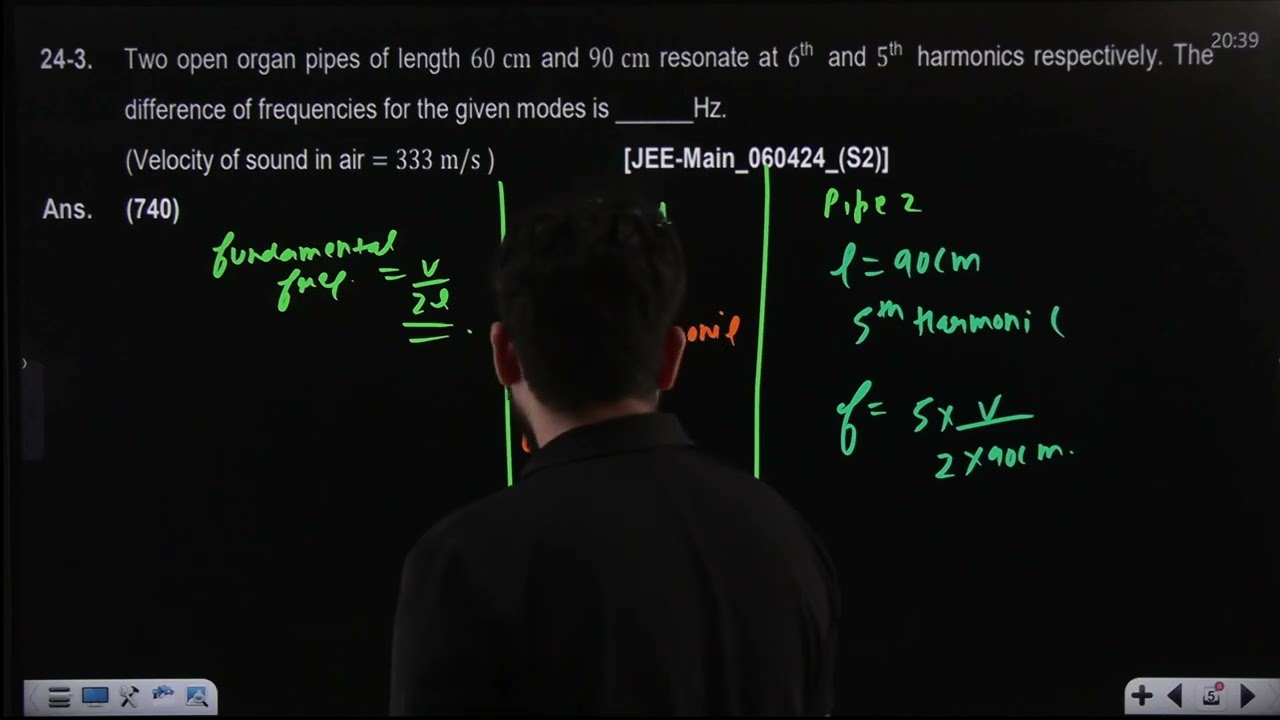 20:39
24-3. Two open organ pipes of length 60 cm and 90 cm resonate at 6th and 5th harmonics respectively. The
difference of frequencies for the given modes is ______Hz.
(Velocity of sound in air = 333 m/s ) [JEE-Main_060424_(S2)]
Ans. (740)
fundamental
freq. = v/2l
onic
Pipe 2
l = 90cm
5th Harmonic
f = 5 x v / 2 x 90cm.
5